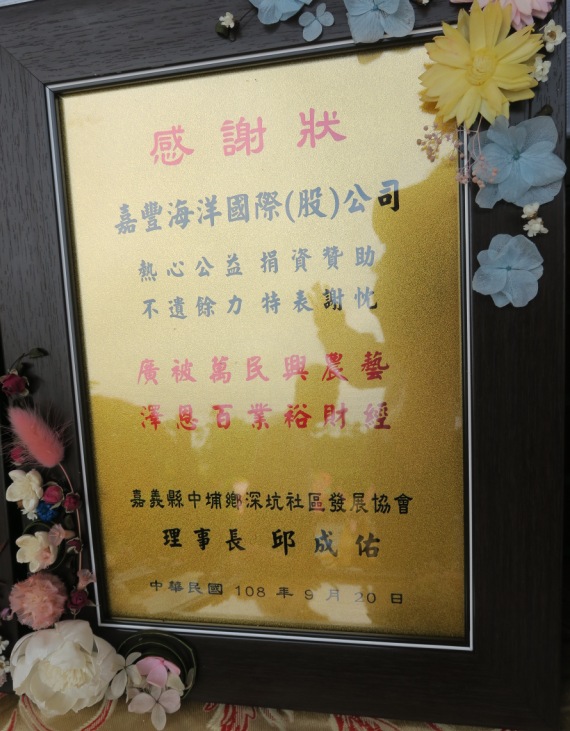 感謝狀
嘉豐海洋國際(股)公司
熱心公益 捐資贊助
不遺餘力 特表謝忱
廣被萬民興農藝
澤恩百業裕財經
嘉義縣中埔鄉深坑社區發展協會
理事長 邱成佑
中華民國 108 年 9 月 20 日